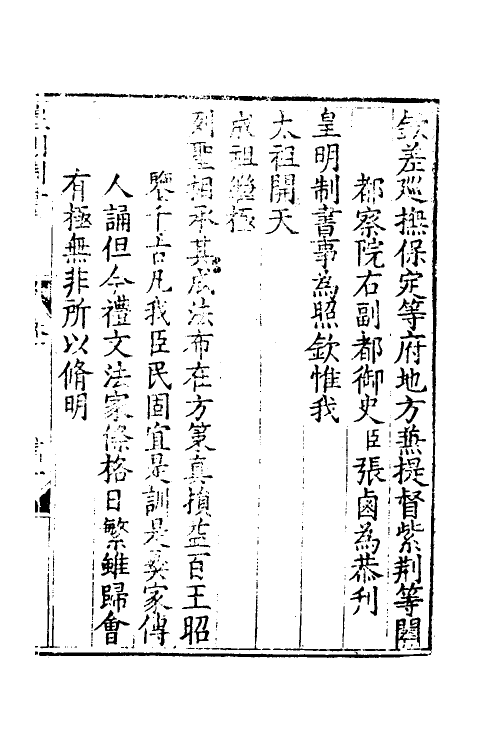 欽差廵撫保定等府地方兼提督紫荆等關
都察院右副都御史臣張鹵為恭刋
皇明制書事為照欽惟我
太祖開天
成祖繼極
列聖相承其成法布在方策真損益百王昭
鑒千古凡我臣民固宜是訓是彛家傳
人誦但今禮文法家條格日繁雖歸會
有極無非所以脩明